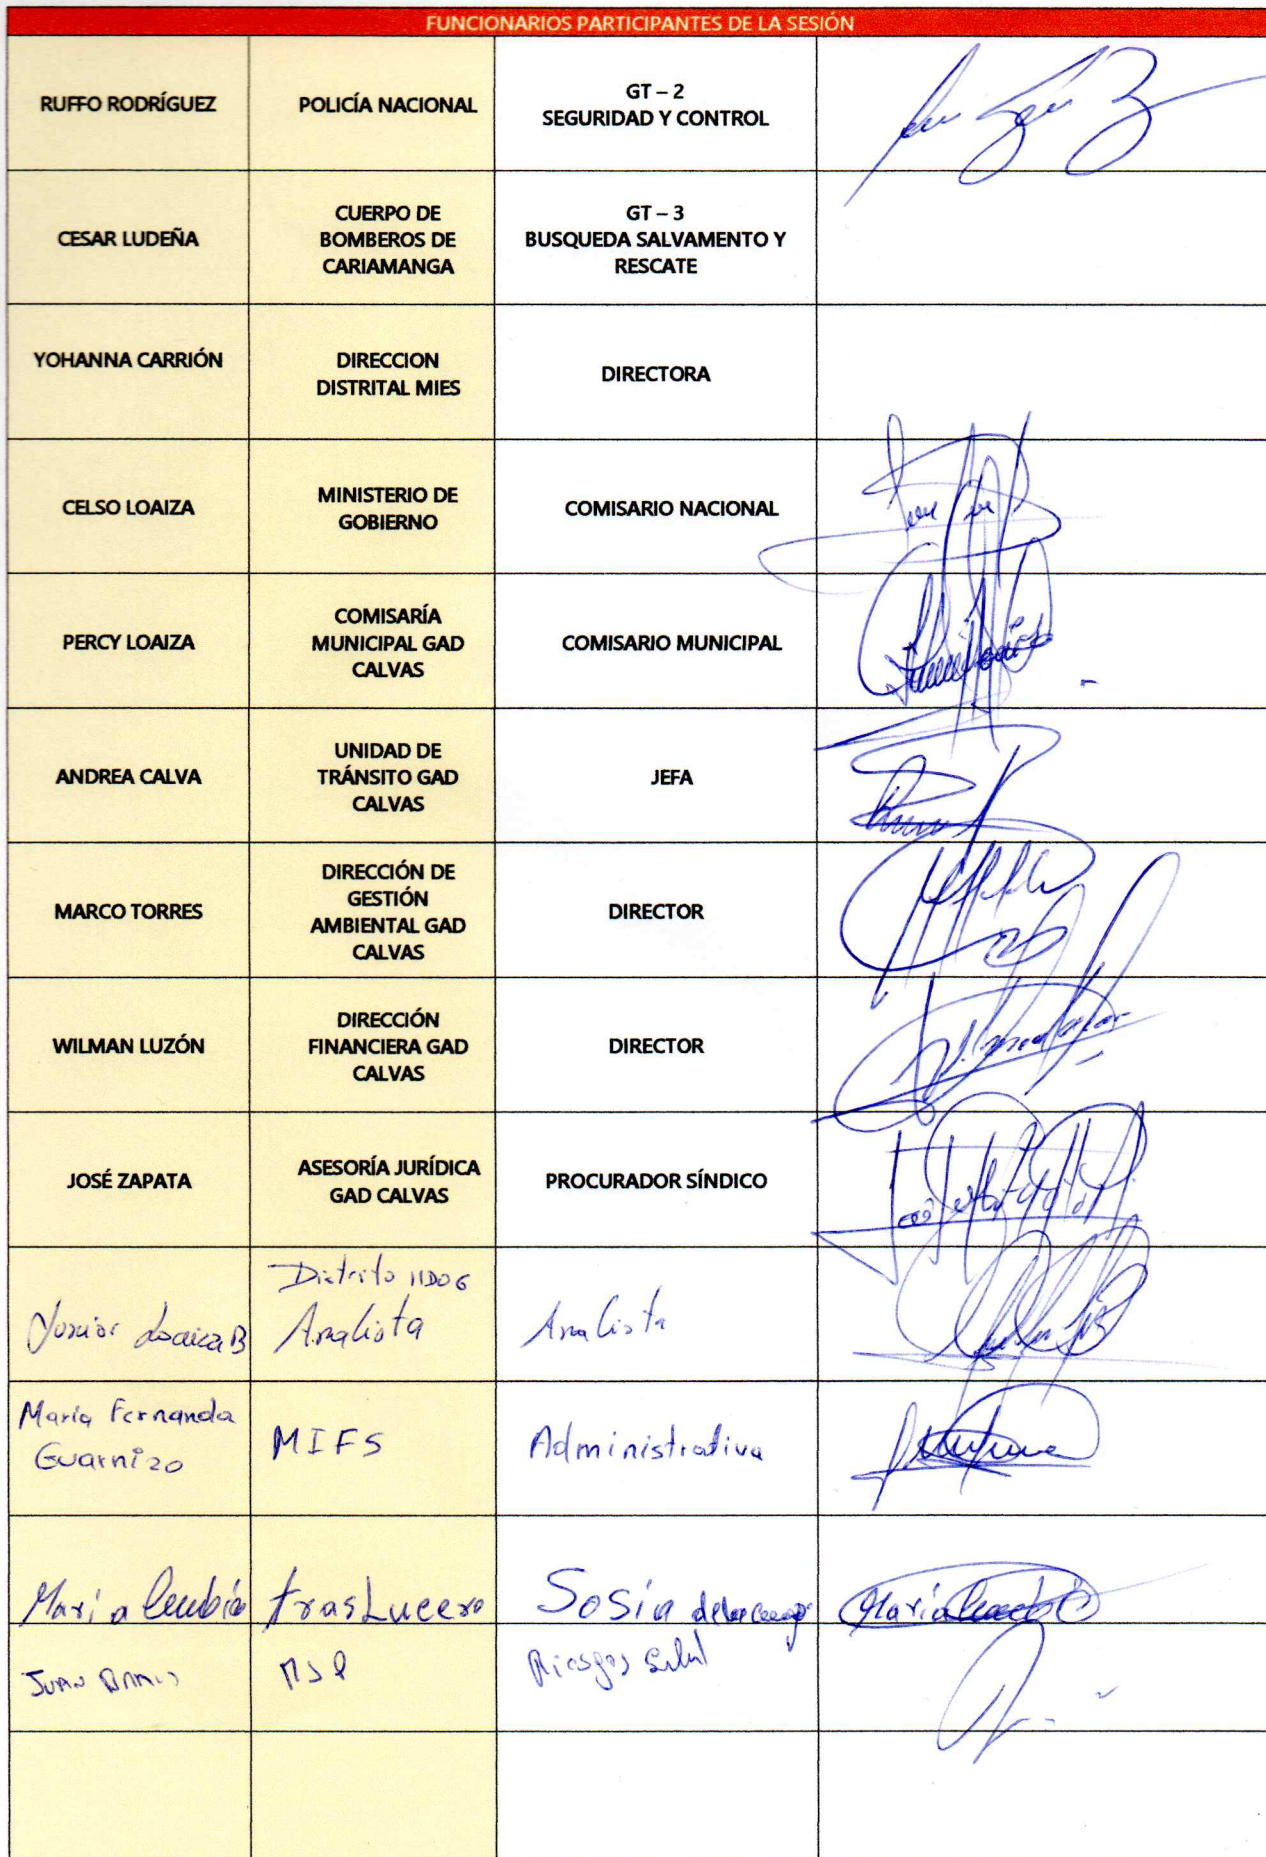 FUNCIONARIOS PARTICIPANTES DE LA SESIÓN
RUFFO RODRÍGUEZ
POLICÍA NACIONAL
GT – 2
SEGURIDAD Y CONTROL
CESAR LUDEÑA
CUERPO DE
BOMBEROS DE
CARIAMANGA
GT – 3
BUSQUEDA SALVAMENTO Y
RESCATE
YOHANNA CARRIÓN
DIRECCION
DISTRITAL MIES
DIRECTORA
CELSO LOAIZA
MINISTERIO DE
GOBIERNO
COMISARIO NACIONAL
PERCY LOAIZA
COMISARÍA
MUNICIPAL GAD
CALVAS
COMISARIO MUNICIPAL
ANDREA CALVA
UNIDAD DE
TRÁNSITO GAD
CALVAS
JEFA
MARCO TORRES
DIRECCIÓN DE
GESTIÓN
AMBIENTAL GAD
CALVAS
DIRECTOR
WILMAN LUZÓN
DIRECCIÓN
FINANCIERA GAD
CALVAS
DIRECTOR
JOSÉ ZAPATA
ASESORÍA JURÍDICA
GAD CALVAS
PROCURADOR SÍNDICO
Junior Loaiza B
Distrito 11D06
Analista
Analista
María Fernanda
Guarnizo
MIES
Administrativa
María
trasLucero
Sosia
María
Juan
MSP
Riesgos Salud